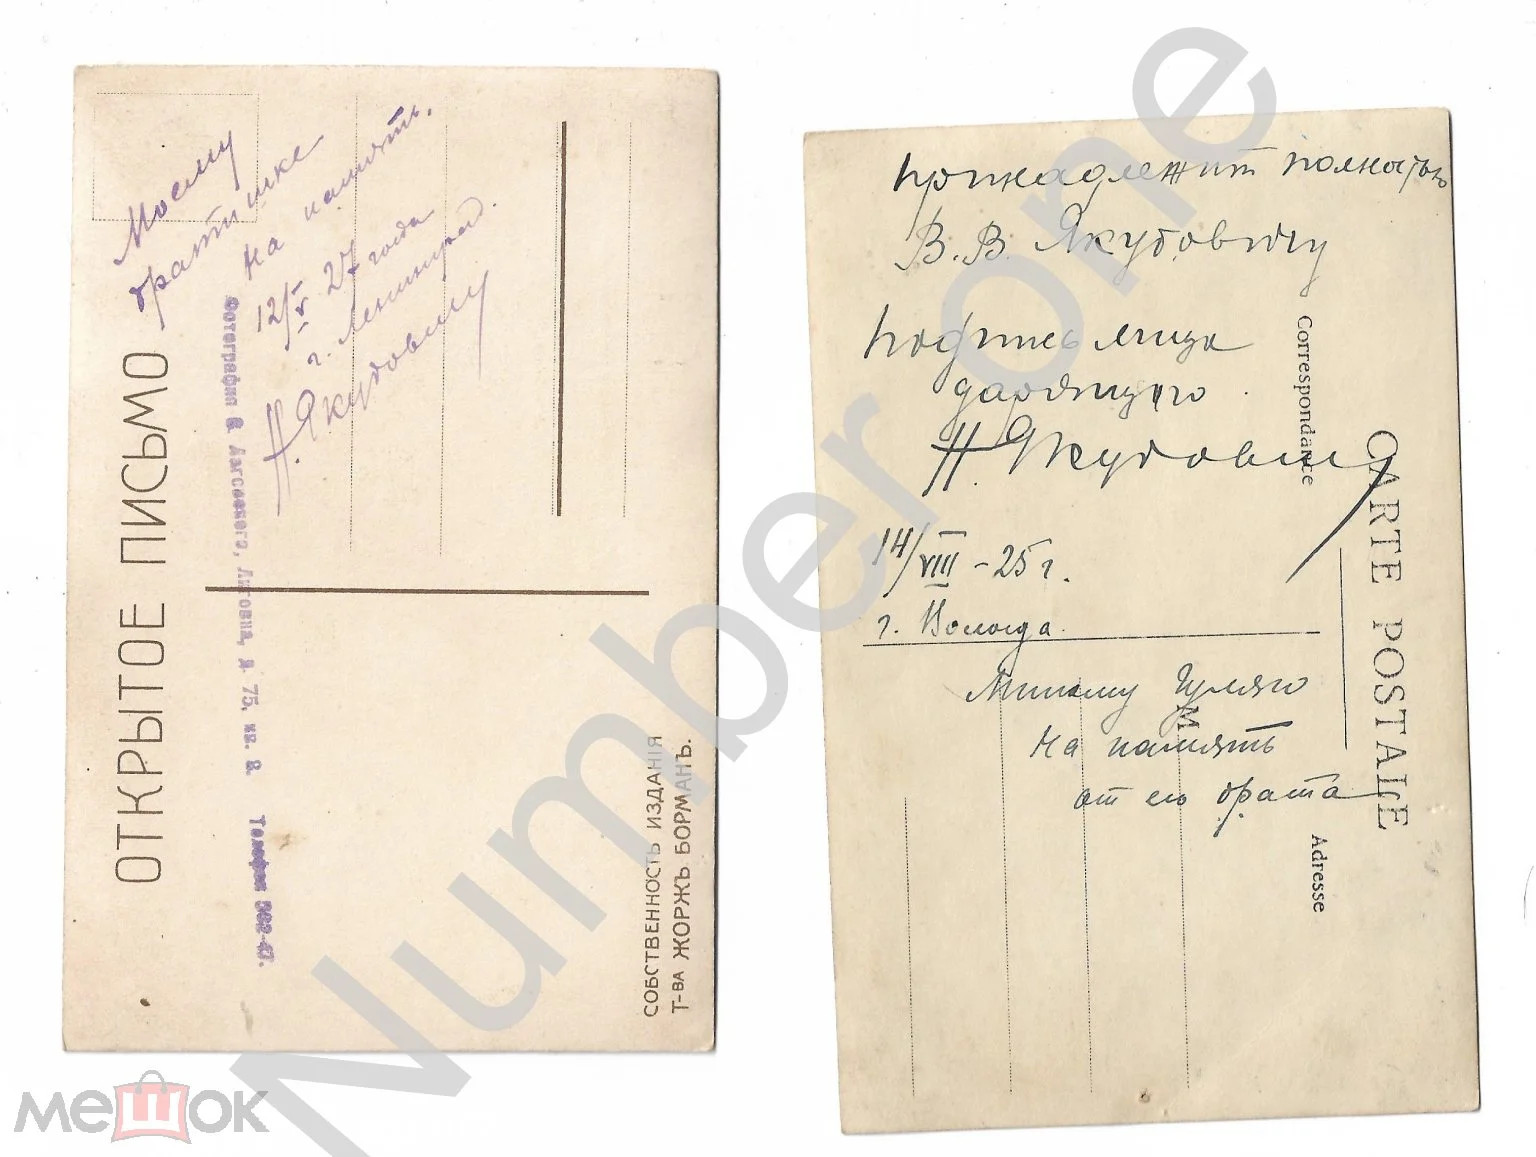 Моему
братишке
на память.
12/V 27 года
г. Ленинград.
Н. Якубович
ОТКРЫТОЕ ПИСЬМО
Фотография Лиговка, д. 75, кв. 3. Телефон
СОБСТВЕННОСТЬ ИЗДАНІЯ
Т-ВА ЖОРЖЪ БОРМАНЪ.
принадлежит полностью
В. В. Якубовичу
Подпись лица
дарящего.
Н. Якубович
14/VIII - 25 г.
г. Вологда
Милому
на память
от его брата
CARTE POSTALE
Correspondance
Adresse
M
Number one
мешок